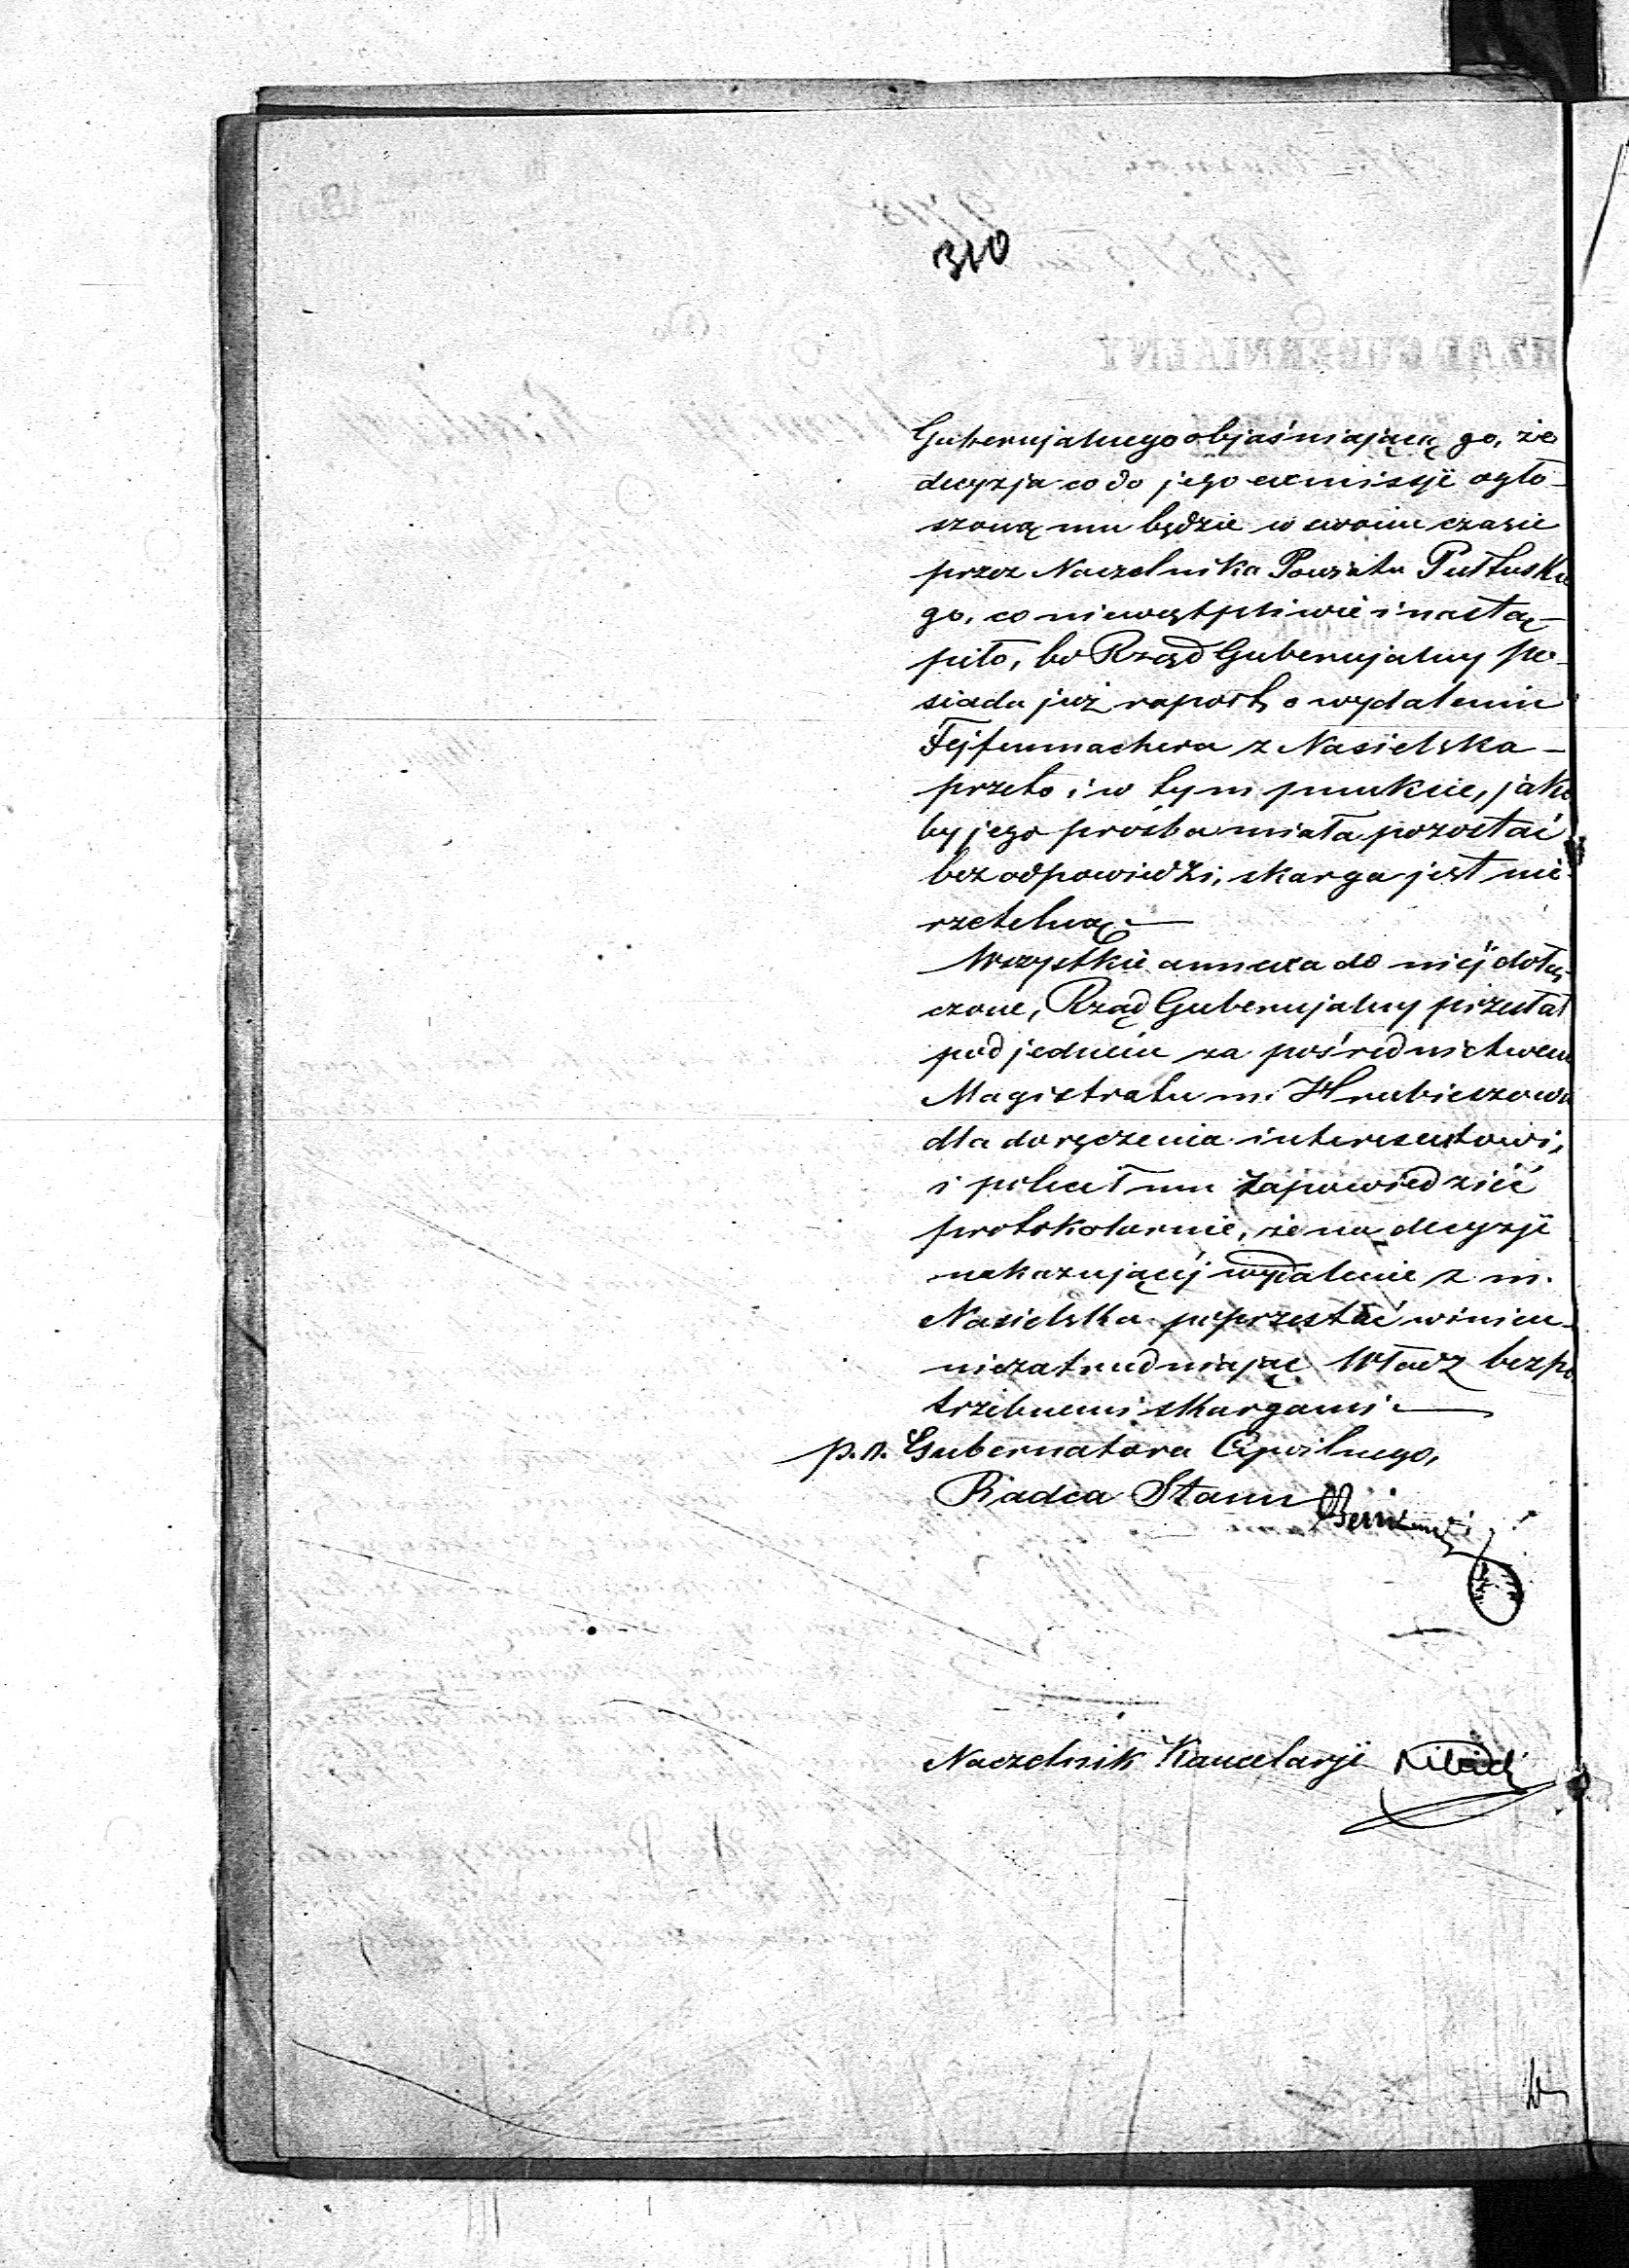 310
Gubernjalnego objaśniającą go, że
decyzja co do jego exmissyi ogło-
szoną mu będzie w swoim czasie
przez Naczelnika Powiatu Pułtuskie
go, co niewątpliwie i nastą-
piło, bo Rząd Gubernjalny po-
siada już raport o wydaleniu
Fejfenmachera z Nasielska –
przeto i w tym punkcie, jako
by jego prośba miała pozostać
bez odpowiedzi, skarga jest nie-
rzetelną. —
Wszystkie annexa do niéj dołą-
czone, Rząd Gubernjalny przesłał
pod jedniem za pośrednictwem
Magistratu m. Hrubieszowa
dla doręczenia interesentowi,
i polecił mu zapowiedzieć
protokolarnie, że na decyzji
nakazującéj wydalenie z m.
Nasielska poprzestać winien –
niezatrudniając Władz bezpo
trzebnemi skargami. —
p. o. Gubernatora Cywilnego,
Radca Stanu
Naczelnik Kancelarji